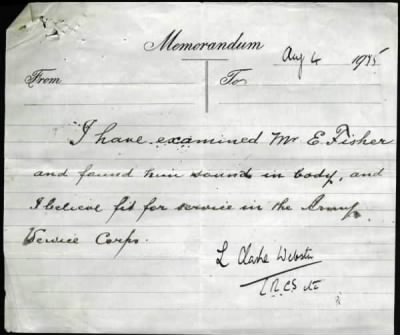 Memorandum
Aug 4 1915
From To
I have examined Mr E. Fisher
and found him sound in body, and
I believe fit for service in the Army
Service Corps.
L Clarke Webster